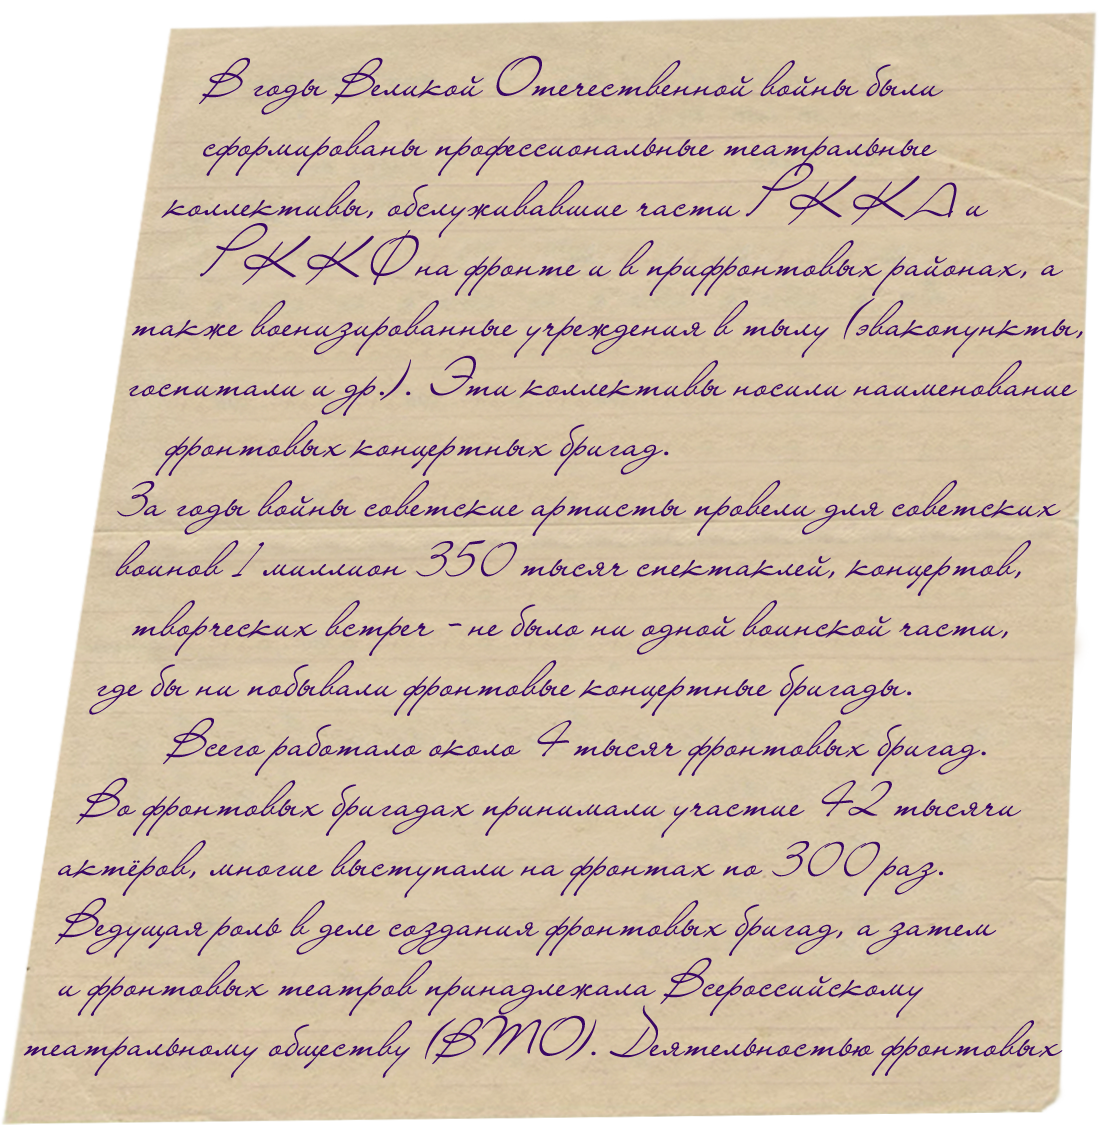 В годы Великой Отечественной войны были
сформированы профессиональные театральные
коллективы, обслуживавшие части РККА и
РККФ на фронте и в прифронтовых районах, а
также военизированные учреждения в тылу (эвакопункты,
госпитали и др.). Эти коллективы носили наименование
фронтовых концертных бригад.
За годы войны советские артисты провели для советских
воинов 1 миллион 350 тысяч спектаклей, концертов,
творческих встреч - не было ни одной воинской части,
где бы ни побывали фронтовые концертные бригады.
Всего работало около 4 тысяч фронтовых бригад.
Во фронтовых бригадах принимали участие 42 тысячи
актёров, многие выступали на фронтах по 300 раз.
Ведущая роль в деле создания фронтовых бригад, а затем
и фронтовых театров принадлежала Всероссийскому
театральному обществу (ВТО). Деятельностью фронтовых